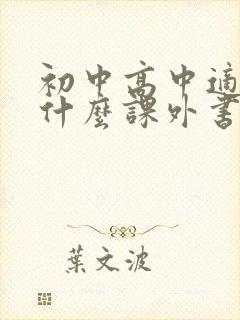 初中高中適
什麼課外書
葉文波